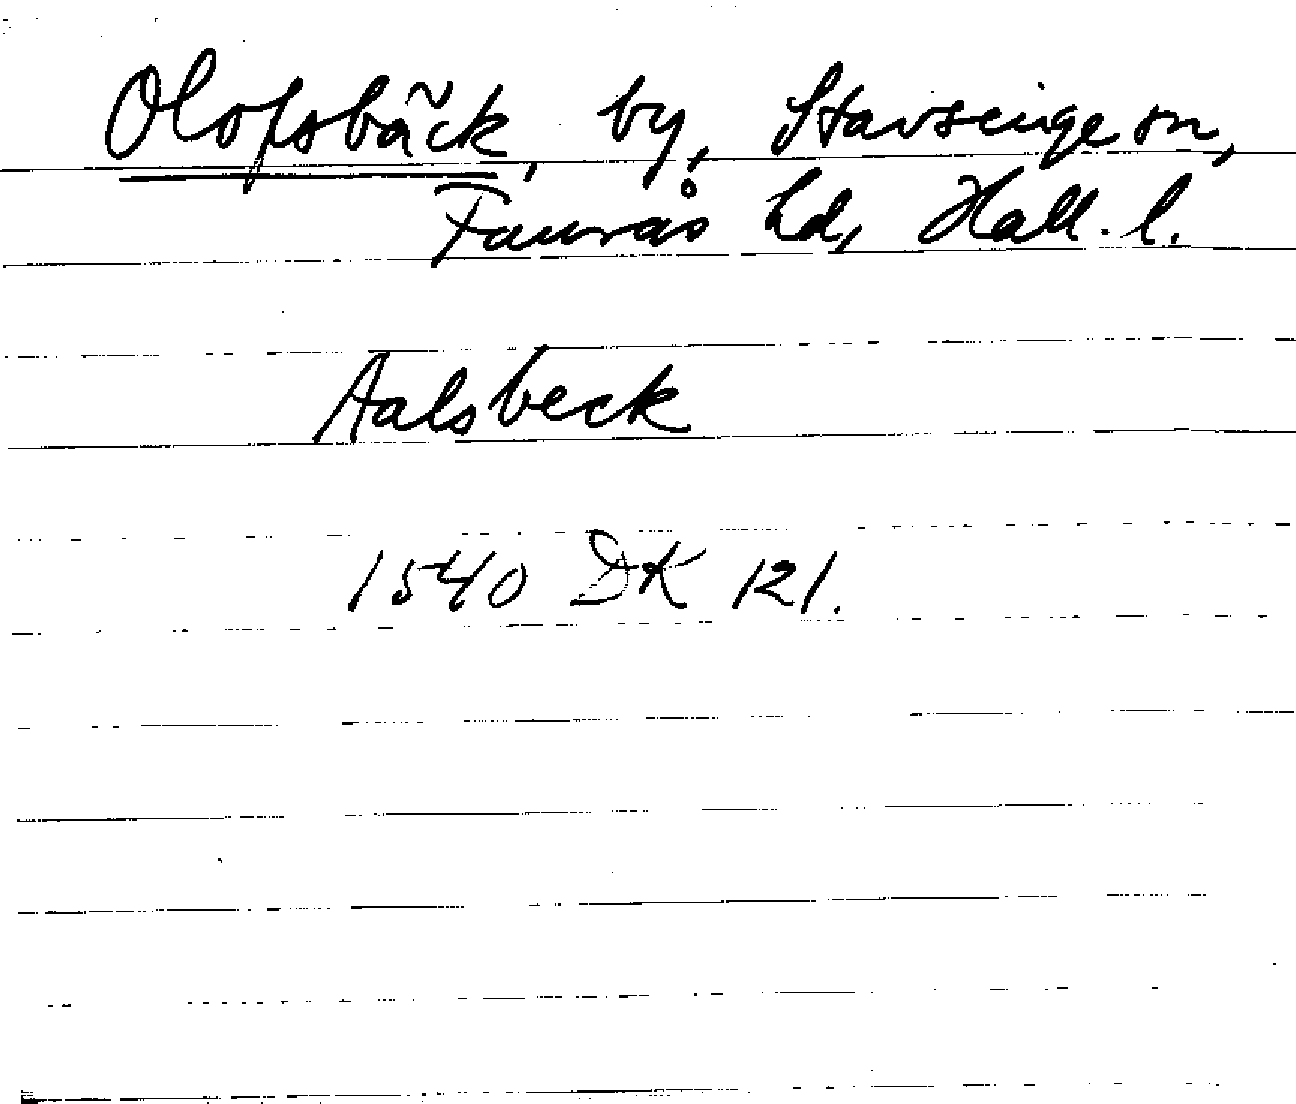 Olofsbäck, by, Stavseinge sn,
Faurås hd, Hall. l.
Aalsbeck
1540 DK 121.